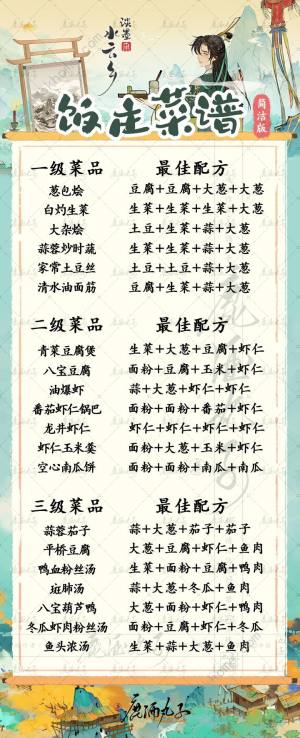 淡墨
水云乡
饭走菜谱
简洁版
一级菜品 最佳配方
葱包烩 豆腐+豆腐+大葱+大葱
白灼生菜 生菜+生菜+生菜+大葱
大杂烩 土豆+生菜+蒜+大葱
蒜蓉炒时蔬 生菜+生菜+蒜+大葱
家常土豆丝 土豆+土豆+蒜+大葱
清水油面筋 豆腐+生菜+蒜+大葱
二级菜品 最佳配方
青菜豆腐煲 生菜+大葱+豆腐+虾仁
八宝豆腐 面粉+豆腐+玉米+虾仁
油爆虾 蒜+大葱+虾仁+虾仁
番茄虾仁锅巴 面粉+面粉+番茄+虾仁
龙井虾仁 虾仁+虾仁+虾仁+虾仁
虾仁玉米羹 面粉+大葱+玉米+虾仁
空心南瓜饼 面粉+面粉+南瓜+南瓜
三级菜品 最佳配方
蒜蓉茄子 蒜+大葱+茄子+茄子
平桥豆腐 大葱+豆腐+虾仁+鱼肉
鸭血粉丝汤 生菜+大葱+豆腐+鸭肉
斑肺汤 蒜+大葱+冬瓜+鱼肉
八宝葫芦鸭 大葱+面粉+虾仁+鸭肉
冬瓜虾肉粉丝汤 面粉+豆腐+虾仁+冬瓜
鱼头浓汤 生菜+蒜+大葱+鱼肉
鹿洒丸子